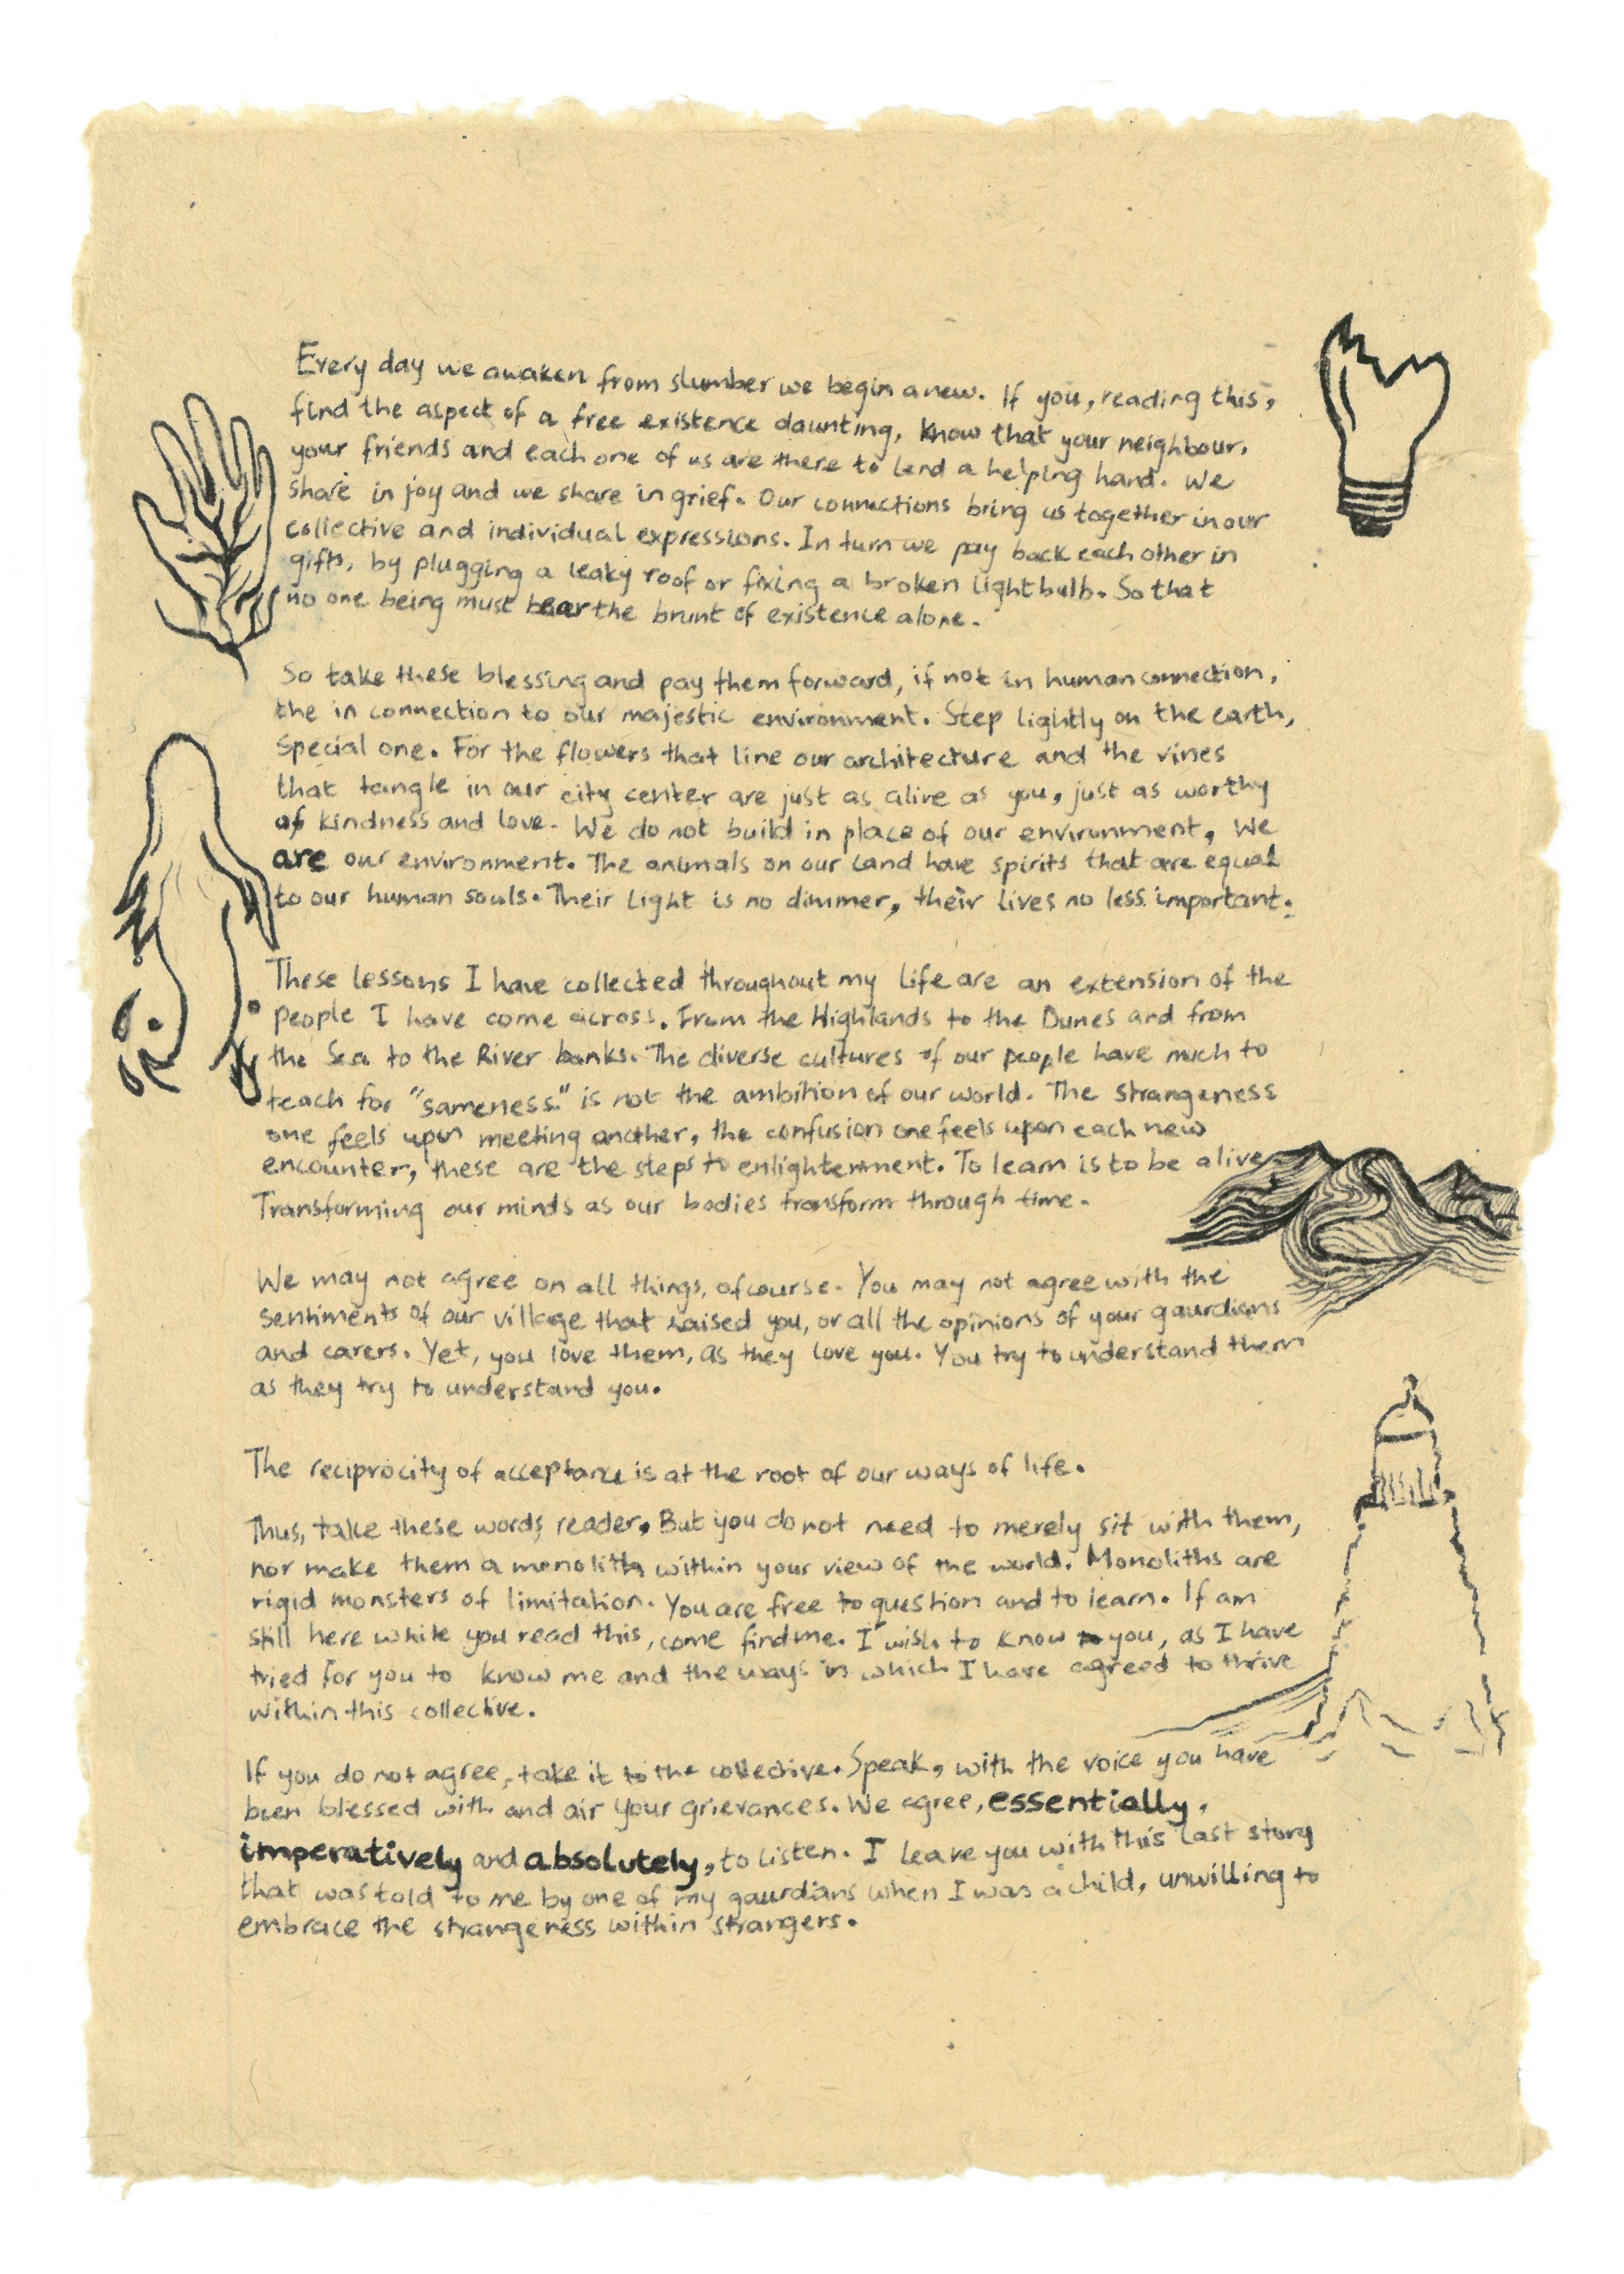 Every day we awaken from slumber we begin anew. If you, reading this,
find the aspect of a free existence daunting, know that your neighbour,
your friends and each one of us are there to lend a helping hand. We
share in joy and we share in grief. Our connections bring us together in our
collective and individual expressions. In turn we pay back each other in
gifts, by plugging a leaky roof or fixing a broken lightbulb. So that
no one being must bear the brunt of existence alone.
So take these blessing and pay them forward, if not in human connection,
the in connection to our majestic environment. Step lightly on the earth,
special one. For the flowers that line our architecture and the vines
that tangle in our city center are just as alive as you, just as worthy
of kindness and love. We do not build in place of our environment, we
are our environment. The animals on our land have spirits that are equal
to our human souls. Their light is no dimmer, their lives no less important.
These lessons I have collected throughout my life are an extension of the
people I have come across. From the Highlands to the Dunes and from
the Sea to the River banks. The diverse cultures of our people have much to
teach for "sameness" is not the ambition of our world. The strangeness
one feels upon meeting another, the confusion one feels upon each new
encounter, these are the steps to enlightenment. To learn is to be alive
Transforming our minds as our bodies transform through time.
We may not agree on all things, of course. You may not agree with the
sentiments of our village that raised you, or all the opinions of your gaurdians
and carers. Yet, you love them, as they love you. You try to understand them
as they try to understand you.
The reciprocity of acceptance is at the root of our ways of life.
Thus, take these words, reader. But you do not need to merely sit with them,
nor make them a monolith within your view of the world. Monoliths are
rigid monsters of limitation. You are free to question and to learn. If am
still here while you read this, come find me. I wish to know to you, as I have
tried for you to know me and the ways in which I have agreed to thrive
within this collective.
If you do not agree, take it to the collective. Speak, with the voice you have
been blessed with and air your grievances. We agree, essentially,
imperatively and absolutely, to listen. I leave you with this last story
that was told to me by one of my gaurdians when I was a child, unwilling to
embrace the strangeness within strangers.